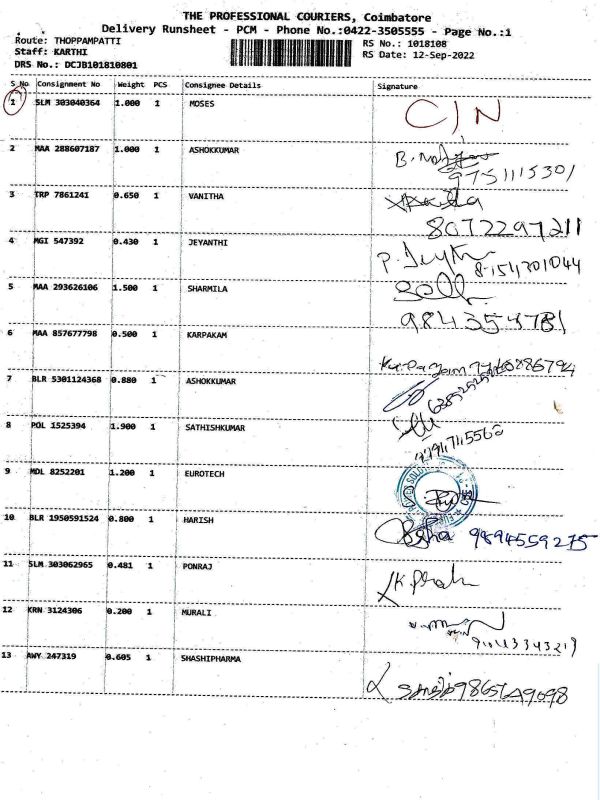 THE PROFESSIONAL COURIERS, Coimbatore
Delivery Runsheet - PCM - Phone No.:0422-3505555 - Page No.:1
Route: THOPPAMPATTI RS No.: 1018108
Staff: KARTHI RS Date: 12-Sep-2022
DRS No.: DCJB101810801
S No Consignment No Weight PCS Consignee Details Signature
1 SLM 303040364 1.000 1 MOSES C/N
2 MAA 288607187 1.000 1 ASHOKKUMAR B.
9751115301
3 TRP 7861241 0.650 1 VANITHA
8072297211
4 MGI 547392 0.430 1 JEYANTHI P. Jeyth
8154201044
5 MAA 293626106 1.500 1 SHARMILA
9843543781
6 MAA 857677798 0.500 1 KARPAKAM
7 BLR 5301124368 0.880 1 ASHOKKUMAR
8 POL 1525394 1.900 1 SATHISHKUMAR
9 MDL 8252201 1.200 1 EUROTECH
10 BLR 1950591524 0.800 1 HARISH 9894559275
11 SLM 303062965 0.481 1 PONRAJ
12 KRN 3124306 0.200 1 MURALI
13 AWY 247319 0.605 1 SHASHIPHARMA